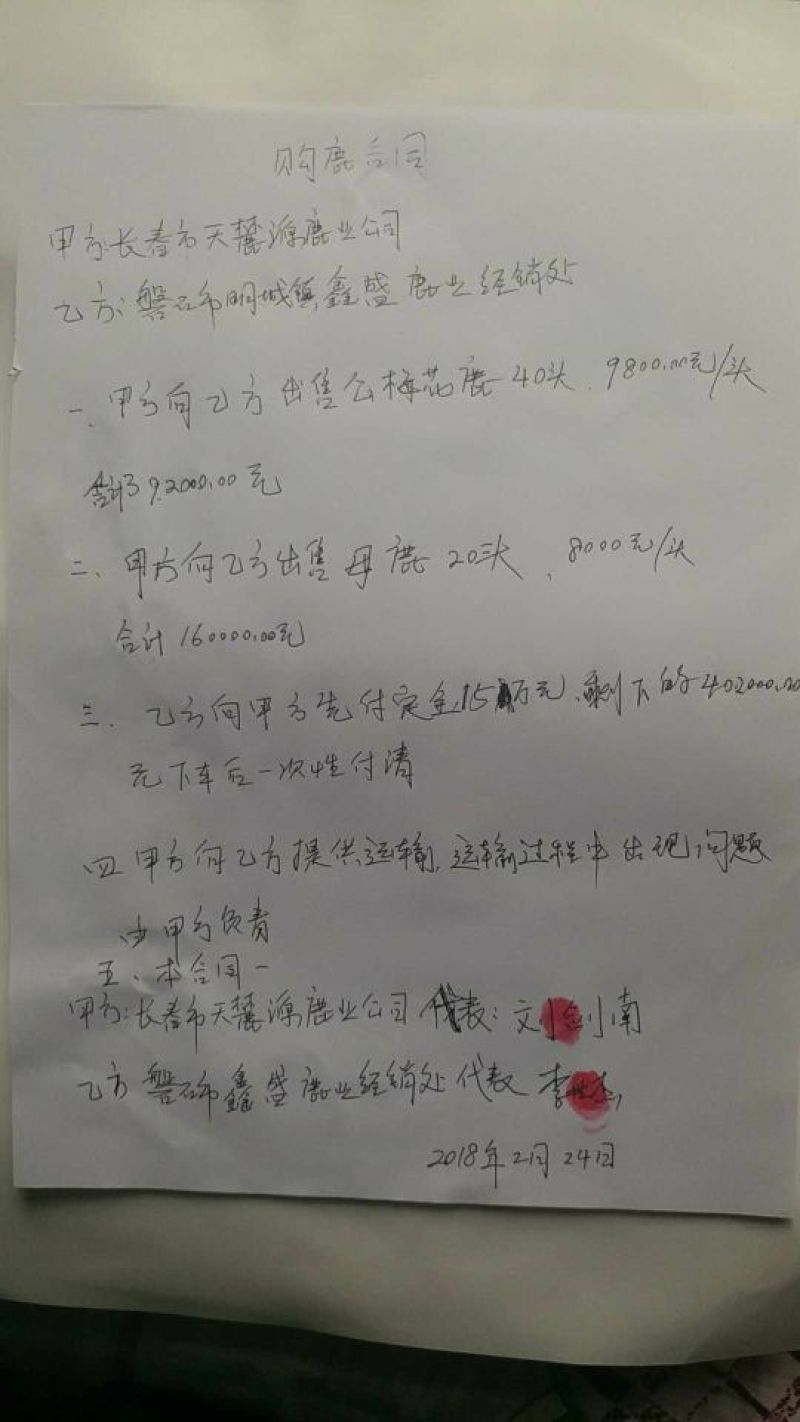 购鹿合同
甲方:长春市天麓源鹿业公司
乙方:磐石市明城镇鑫盛鹿业经销处
一、甲方向乙方出售公梅花鹿40头、9800.00元/头
合计392000.00元
二、甲方向乙方出售母鹿20头、8000元/头
合计160000.00元
三、乙方向甲方先付定金15万元、剩下的402000.00
元下车后一次性付清
四 甲方向乙方提供运输,运输过程中出现问题
由甲方负责
五、本合同一
甲方:长春市天麓源鹿业公司 代表:刘剑南
乙方 磐石市鑫盛鹿业经销处 代表 李
2018年2月24日